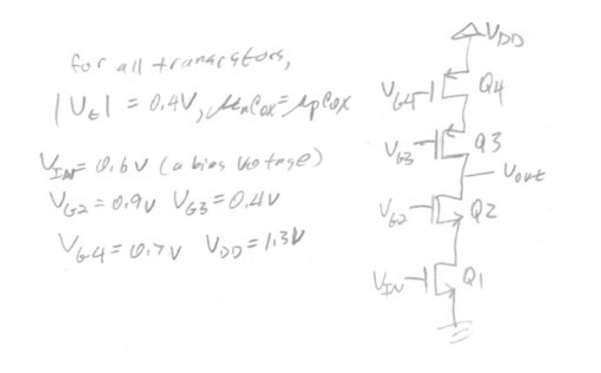 for all transistors,
|Vt| = 0.4V, μnCox=μpCox
VIN= 0.6V (a bias voltage)
VG2=0.9V VG3=0.4V
VG4=0.7V VDD=1.3V
VDD
VG4
Q4
VG3
Q3
Vout
VG2
Q2
VIN
Q1